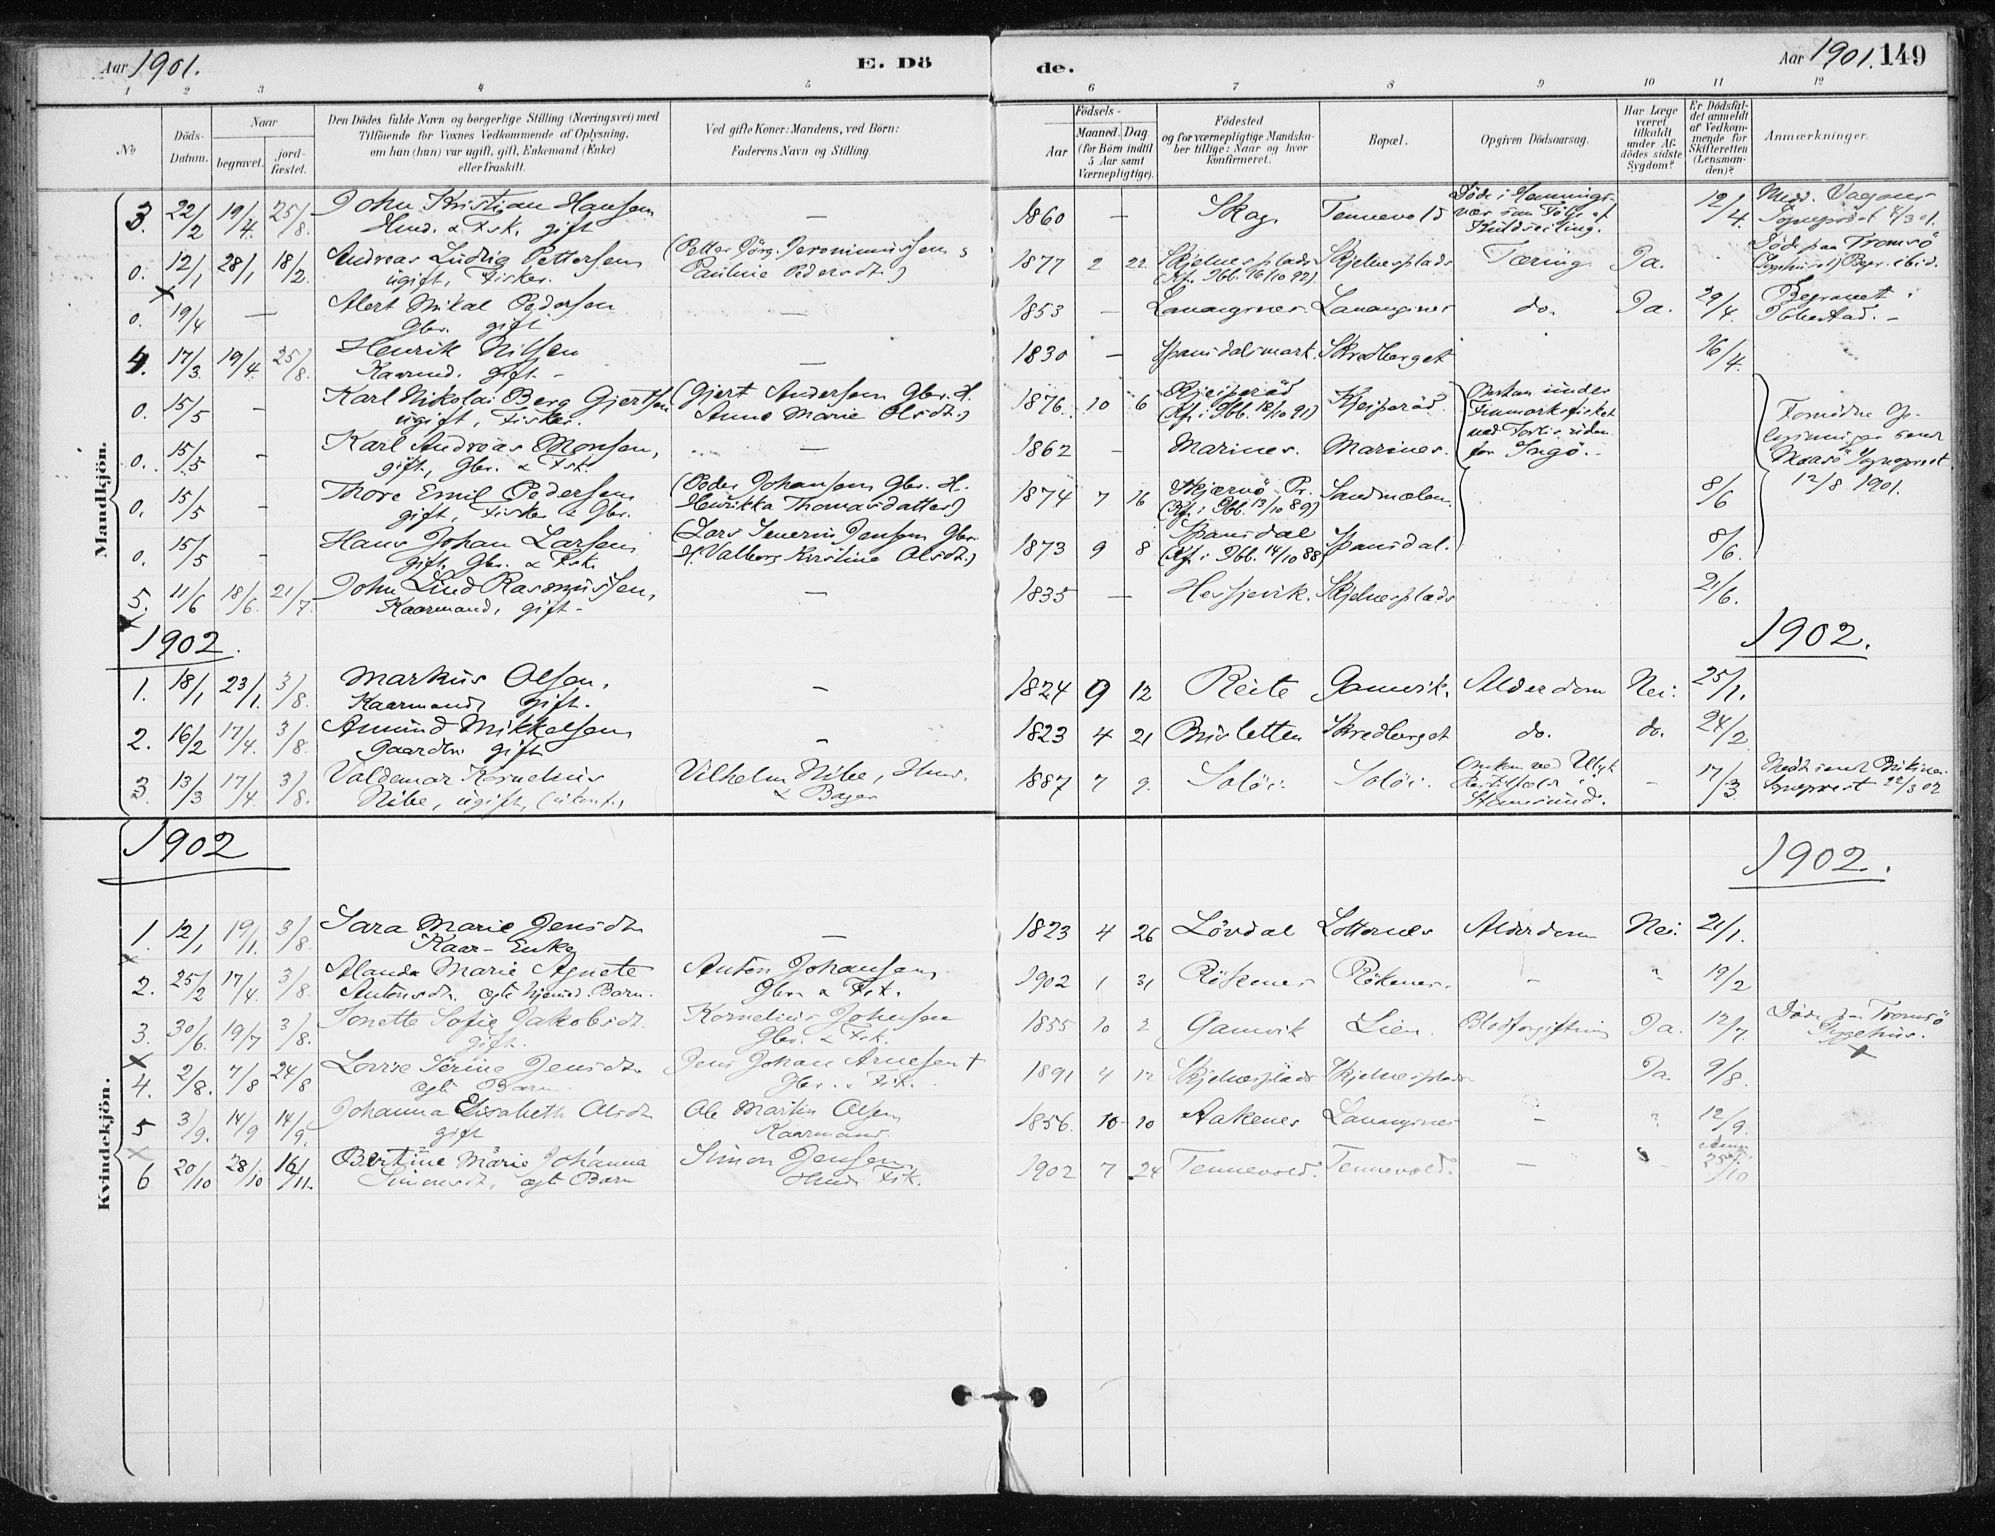 Aar 1901. E. Dö de. Aar 1901. 149
1 2 3 4 5 6 7 8 9 10 11 12
No Döds-Datum. Naar begravet. jord-fæstet. Den Dödes fulde Navn og borgerlige Stilling (Næringsvei) med Tilföiende for Voxnes Vedkommende af Oplysning, om han (hun) var ugift, gift, Enkemand (Enke) eller fraskilt. Ved gifte Koner: Mandens, ved Börn: Faderens Navn og Stilling. Födsels- Aar Maaned Dag (for Börn indtil 5 Aar samt Værnepligtige). Födested og for værnepligtige Mandskaber tillige: Naar og hvor konfirmeret. Bopæl. Opgiven Dödsaarsag. Har Læge været tilkaldt under Afdödes sidste Sygdom? Er Dødsfaldet anmeldt af Vedkommende for Skifteretten (Lensmanden)? Anmærkninger.
Mandkjön.
3. 22/2 19/4 25/8. John Kristian Hansen — 1860 — Skag Tennevold Döde i Hennings- 12/4.
Husd. & Fsk. gift
o. 12/1 28/1 18/2. Andreas Ludvig Pettersen (Petter Jörg. Jeronimussen, 1877 2 22 Skjelnesplads Skjelnesplads Tæring Ja. Döde paa Tromsö
ugift, Fisker. Pauline Pedersdt.) (Kf. i Ibb. 16/10 92)
o. 19/4 — Alert Mikal Pedersen — 1853 — Lavangsnes Lavangsnes do. Ja. 29/4. Begravet i
Gbr. gift Ibbestad. –
4. 17/3 19/4. 25/8. Henrik Nilsen — 1830 — Spansdalsmark. Skredberget 26/4.
Kaarmd. gift. –
o. 15/5 – Karl Nikolai Berg Gjertsen (Gjert Andersen Gbr. H. 1876 10 6 Kjeiperöd Kjeiperöd. Omkom under
ugift, Fisker. Anne Marie Olsdt.) (Kf. i Ibb. 18/10 91) Finmarksfisket
o. 15/5 – Karl Andreas Monsen, — 1862 – Marines. Marines.
gift, Gbr. & Fsk. for Ingö. –
o. 15/5 – Thore Emil Pedersen (Peder Johansen Gbr. H. 1874 7 16 Sandmælen 8/6 12/8 1901.
gift, Fisker & Gbr. Henrikka Thomasdatter) (Kf. i Ibb. 13/10 89)
o. 15/5 – Hans Johan Larsen (Lars Severin Jensen Gbr. 1873 9 8 Spansdal Spansdal. 8/6.
gift, Gbr. & Fsk. H. Valborg Kirstine Olsdt.) (Kf. i Ibb. 14/10 88)
5. 11/6 18/6. 21/7. John Lind Rasmussen, — 1835 — Hessjevik. Skjelnesplads 21/6.
Kaarmand, gift –
1902. 1902.
1. 18/1 23/1. 3/8. Markus Olsen, – 1824 9 12 Reite Gamvik. Alderdom Nei. 25/1.
Kaarmand, gift.
2. 16/2 17/4. 3/8. Amund Mikkelsen – 1823 4 21 Skredberget do. do. 24/2
gift
3. 13/3 17/4. 3/8. Valdemar Kornelius Vilhelm Nibe, 1887 7 9. Solöi. Solöi. – 17/3.
Nibe, ugift, (ukonf.) & Bager
1902 1902.
Kvindekjön.
1. 12/1 19/1. 3/8. Sara Marie Jensdt. — 1823 4 26 Lövdal Lotternes Alderdom Nei. 21/1.
Kaar-Enke
2. 25/2 17/4. 3/8. Alanda Marie Agnete Anton Johansen 1902 1 31 Rökenes Rökenes. – " 19/2
Antonsdt. ægte hjemdt. Barn. Gbr. & Fsk.
3. 30/6. 19/7 3/8. Tonette Sofie Jakobsdt. Kornelius Johnsen 1855 10 2 Gamvik Lien. Blodforgiftning Ja. 12/7. Döde paa Tromsö
gift. Gbr. & Fsk. Sygehus.
4. 2/8. 7/8 24/8 Lovise Serine Jensdt. Jens Johan Arnesen † 1891 4 12 Skjelnesplads Skjelnesplads Ja. 9/8.
ægte Barn Gbr. & Fsk.
5 3/9. 14/9 14/9. Johanna Elisabeth Olsdt Ole Martin Olsen 1856. 10 20 Aakenes Lavangsnes – " 12/9.
gift Kaarmand.
6 20/10 28/10 16/11. Bertine Marie Johanna Simon Jensen 1902 7 24 Tennevold. Tennevold. – 25/10
Simonsdt. ægte Barn Husd. Fsk.